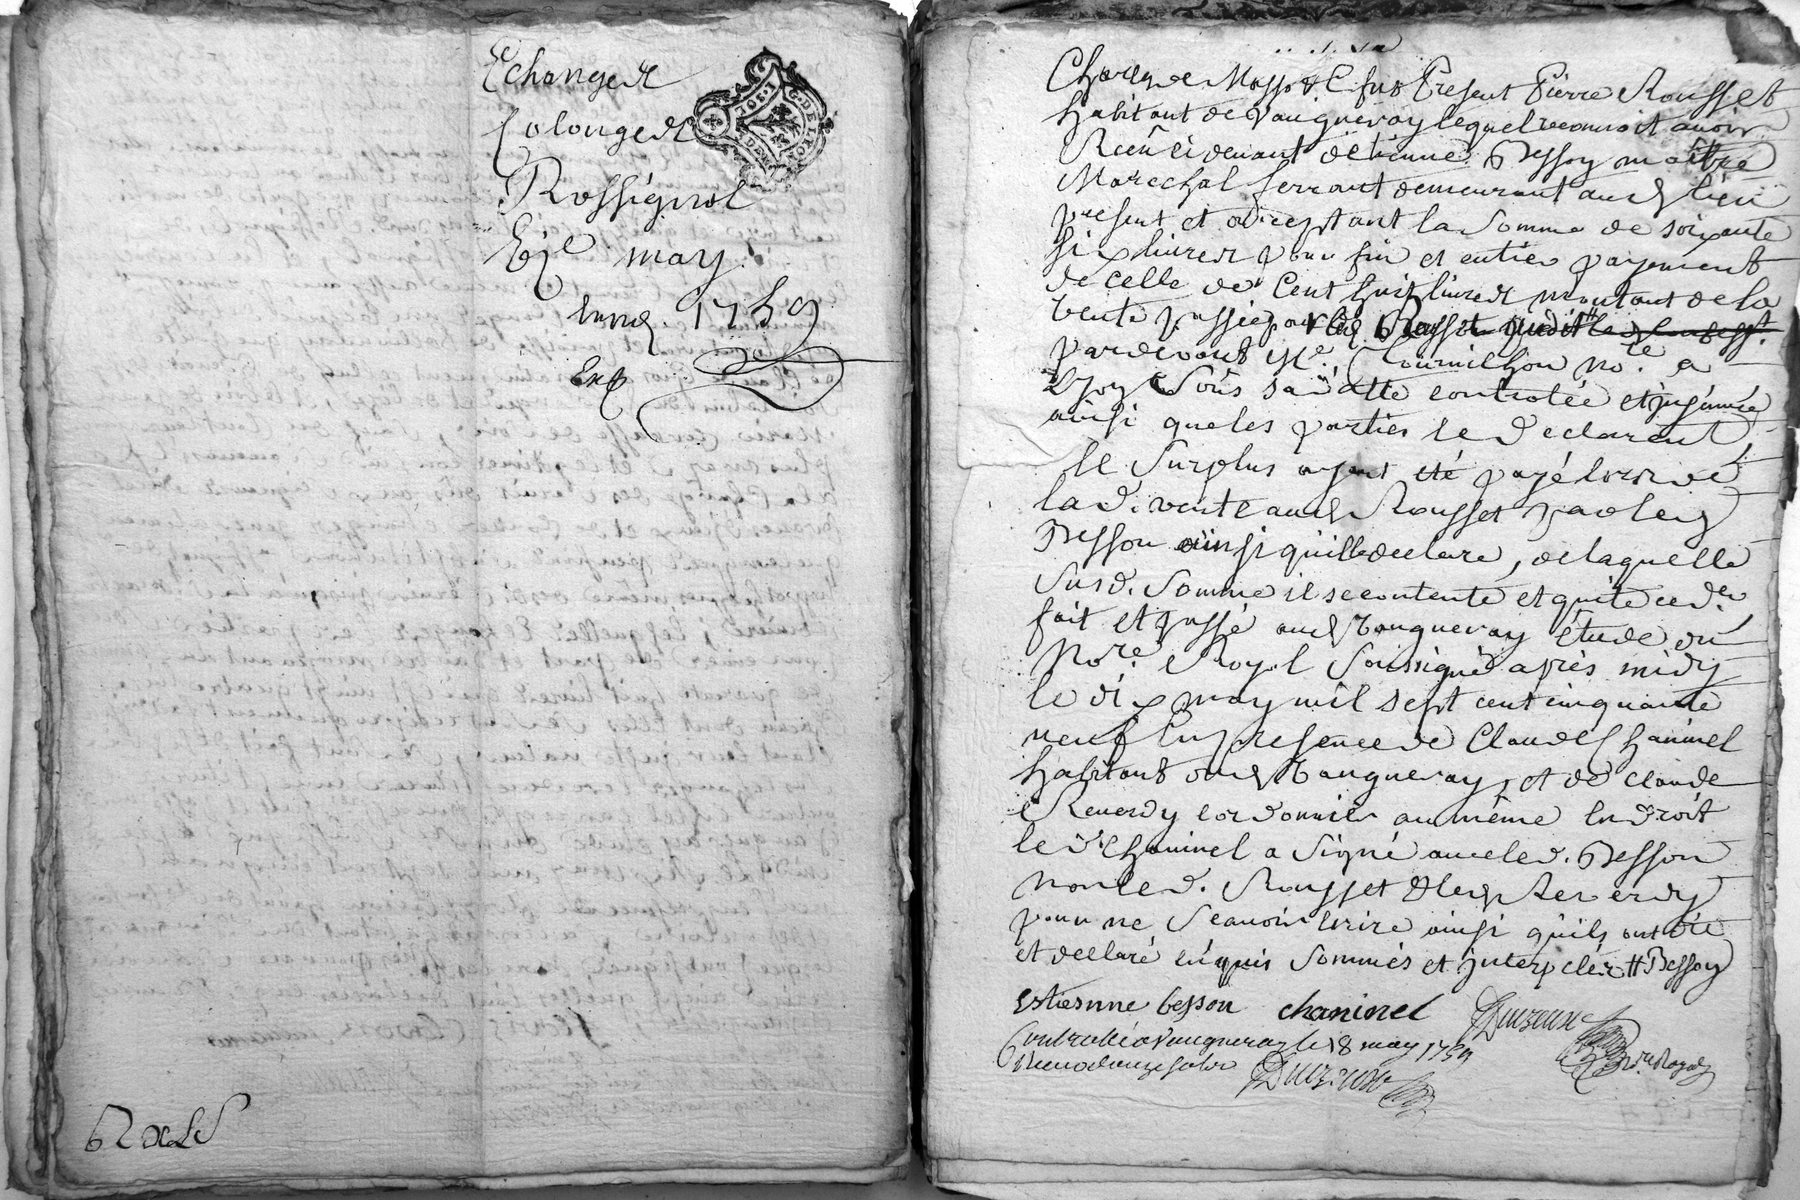 Echange et
Colonge et
Rossignol
may
année 1759
Exp
G. DE LYON
62
Present Pierre Rousset
habitant de Vaugneray lequel reconnoit avoir
Receu ci devant d'etienne Besson maitre
Marechal ferrant demeurant aud lieu
present et acceptant la Somme de soixante
six livres pour fin et entier payement
de celle de Cent huit livres montant de la
vente passée par led
pardevant Me. no.re a
Lyon sous sa datte controlée et
ainsi que les parties le Declarent,
le Surplus ayant eté payé lors de
lad. vente aud Rousset par led
Besson ainsi qu'ille declare, de laquelle
susd. Somme il se contente et quite
fait et passé aud Vaugneray étude du
No.re Royal Soussigné après midy
le dix may mil sept cent cinquante
neuf En presence de Claude Chaninel
habitant aud Vaugneray, et de claude
Reverdy cordonnier au même Endroit
le d. Chaninel a Signé avec led. Besson
non led. Rousset & led Reverdy
pour ne Scavoir Ecrire ainsi qu'ils ont dit
et declaré enquis Sommés et jnterpelés # Besson
Estienne besson chaninel
Controllé a Vaugneray le 18 may 1759
Reçu douze sols